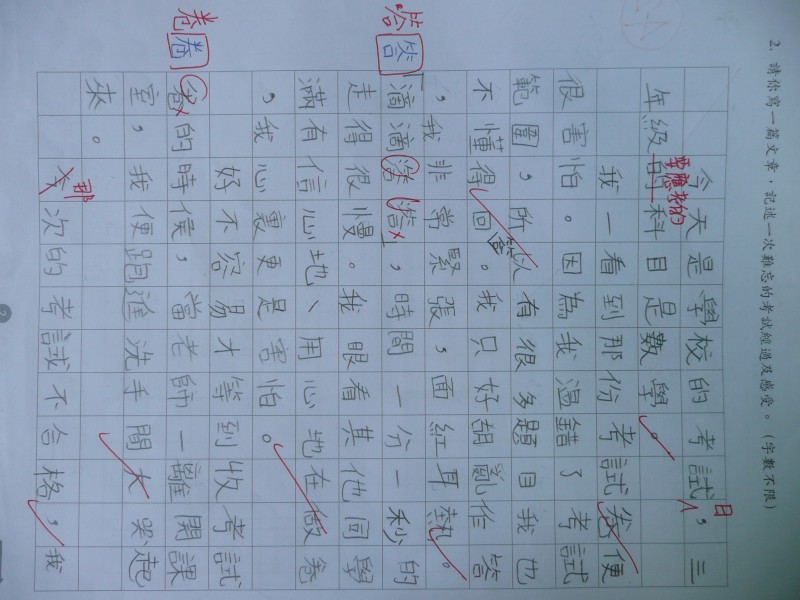 2. 請你寫一篇文章，記述一次難忘的考試經過及感受。（字數不限）
今天是學校的考試，三
日
年級的科目是數學。
要應考的
我一看到那份考試卷便
很害怕。因為我溫錯了考試
範圍，所以有很多題目我也
不懂得回答。我只好胡亂作答
，我非常緊張，面紅耳熱。
答
「滴滴」，時間一分一秒的
走得很慢。我眼看其他同學
滿有信心地、用心地在做卷
，我心裏更是害怕。
好不容易才等到收考試
卷 卷
的時候，當老師一離開課
室，我便跑進洗手間大哭起
來。
那
今次的考試不合格，我
2